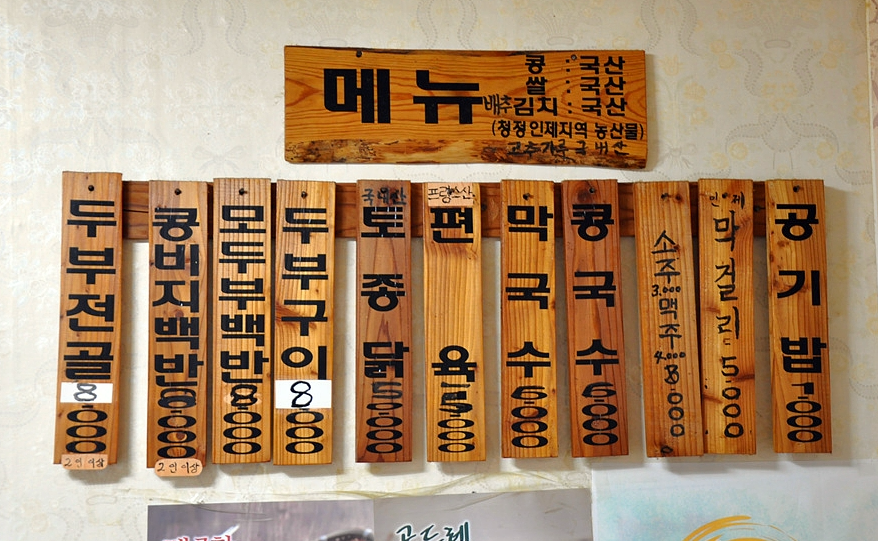 메뉴
콩 : 국산
쌀 : 국산
배추김치 : 국산
(청정인제지역 농산물)
고추가루 국내산
두부전골
8.000
2인이상
콩비지백반
8.000
2인이상
모두부백반
8.000
두부구이
8.000
국내산
토종닭
프랑스산
편육
막국수
6.000
콩국수
6.000
소주
3.000
맥주
4.000
인제
막걸리
5.000
공기밥
1.000